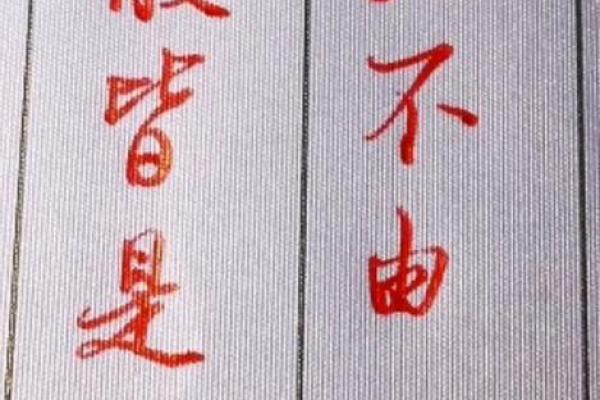 般皆是
不由